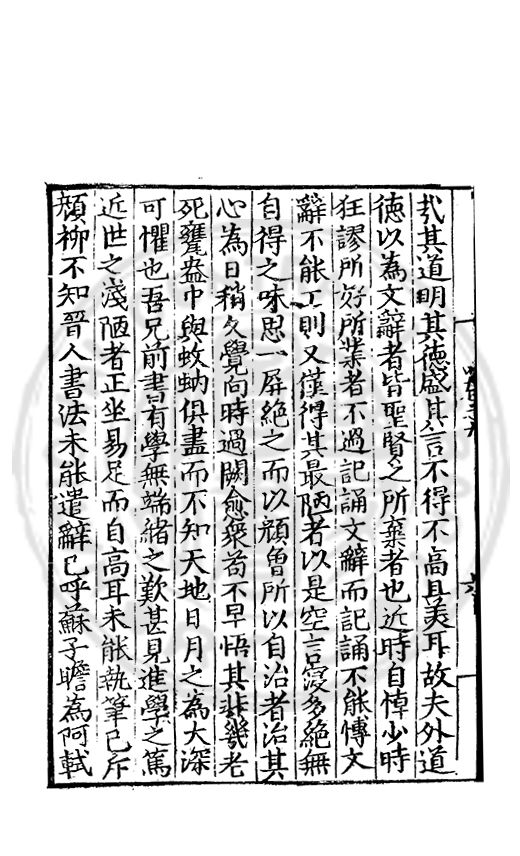 哉其道明其德盛其言不得不高且美耳故夫外道
德以為文辭者皆聖賢之所棄者也近時自悼少時
狂謬所好所業者不過記誦文辭而記誦不能博文
辭不能工則又僅得其最陋者以是空言寖多絕無
自得之味思一屏絕之而以顏魯所以自治者治其
心為日稍久覺向時過闕愈衆苟不早悟其非幾老
死甕盎巾與蚊蚋俱盡而不知天地日月之為大深
可懼也吾兄前書有學無端緒之歎甚見進學之篤
近世之淺陋者正坐易足而自高耳未能執筆已斥
顏柳不知晉人書法未能遣辭已呼蘇子瞻為阿軾